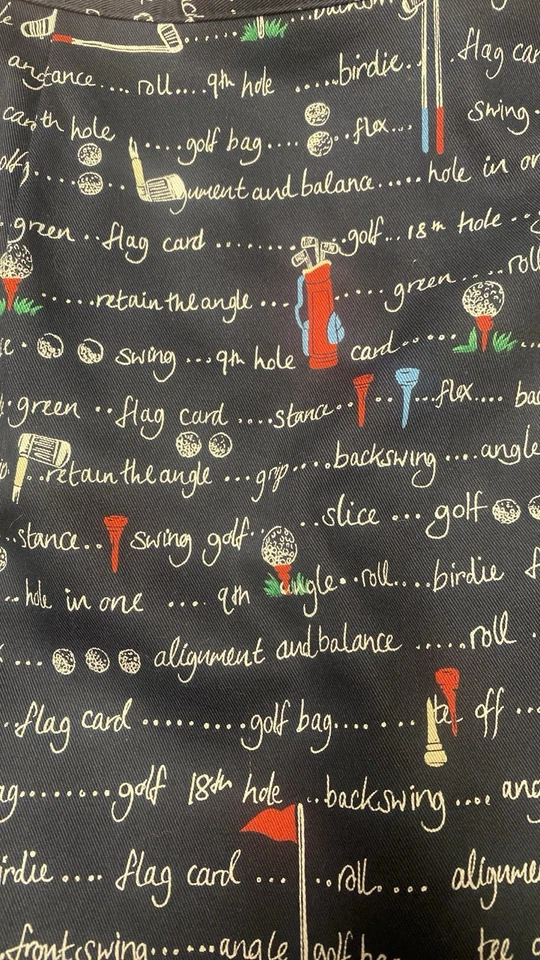 stance.... roll....9th hole .....birdie.. . flag car
th hole .....golf bag.... ..flex... Swing.
gument and balance..... hole in on
.green ..flag card ........ .golf...18th hole ..
......retain the angle ... .....green.....roll
. swing ...9th hole card......
.green ..flag card ....stance.. ...flex.... bac
..retain the angle ...grip....backswing ....angle
..stance.. swing golf. ..slice ... golf
...hole in one .... 9th angle..roll....birdie f
... alignment and balance .....roll .
..flag card .........golf bag........ tee off ...
ag........golf 18th hole ..backswing .... ang
irdie .... flag card ... ..roll.... alignme
.front swing.......angle golf ba tee o